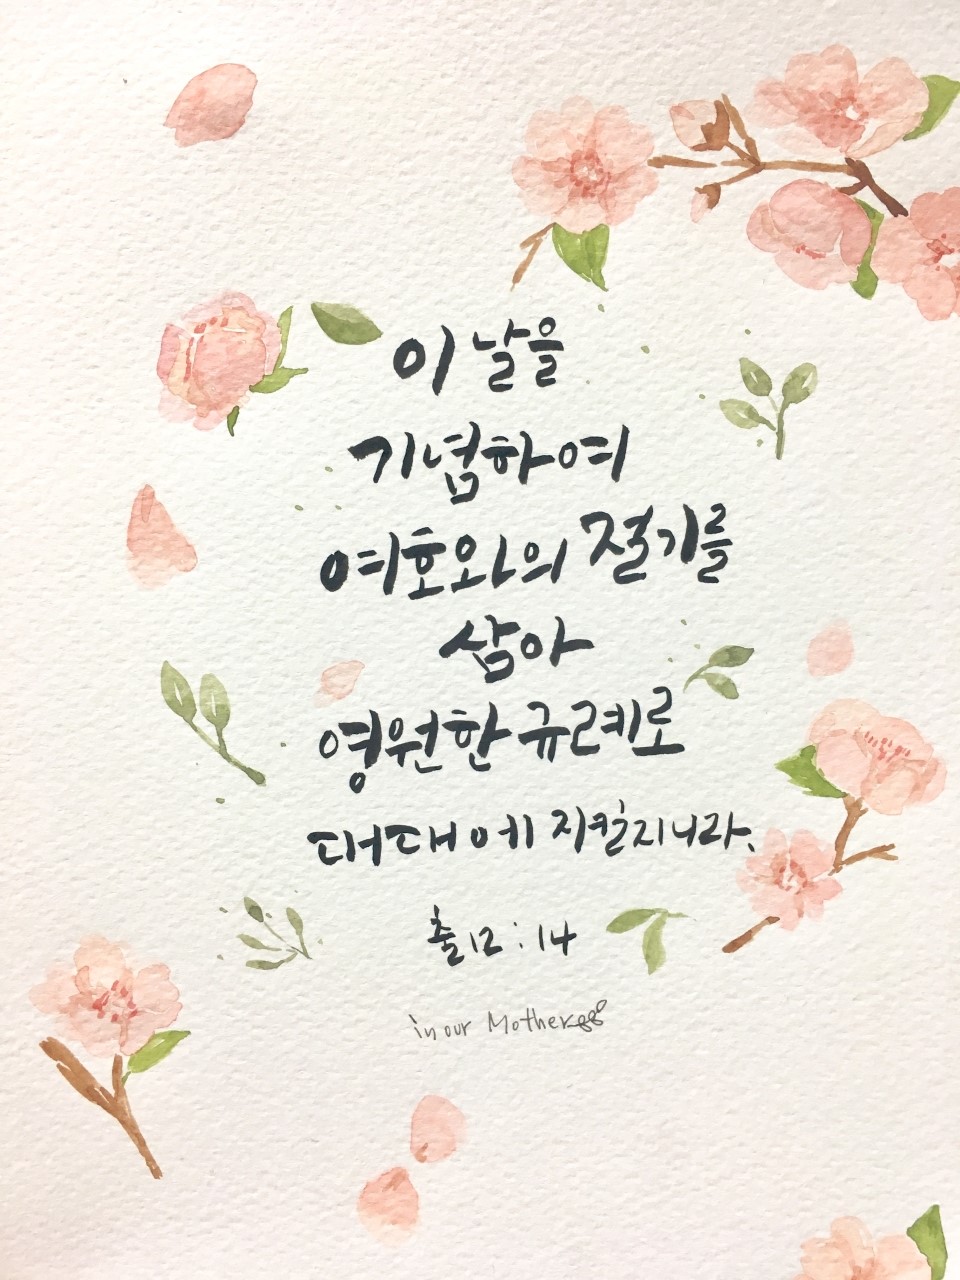 이 날을
기념하여
여호와의 절기를
삼아
영원한 규례로
대대에 지킬지니라.
출12:14
in our Mother